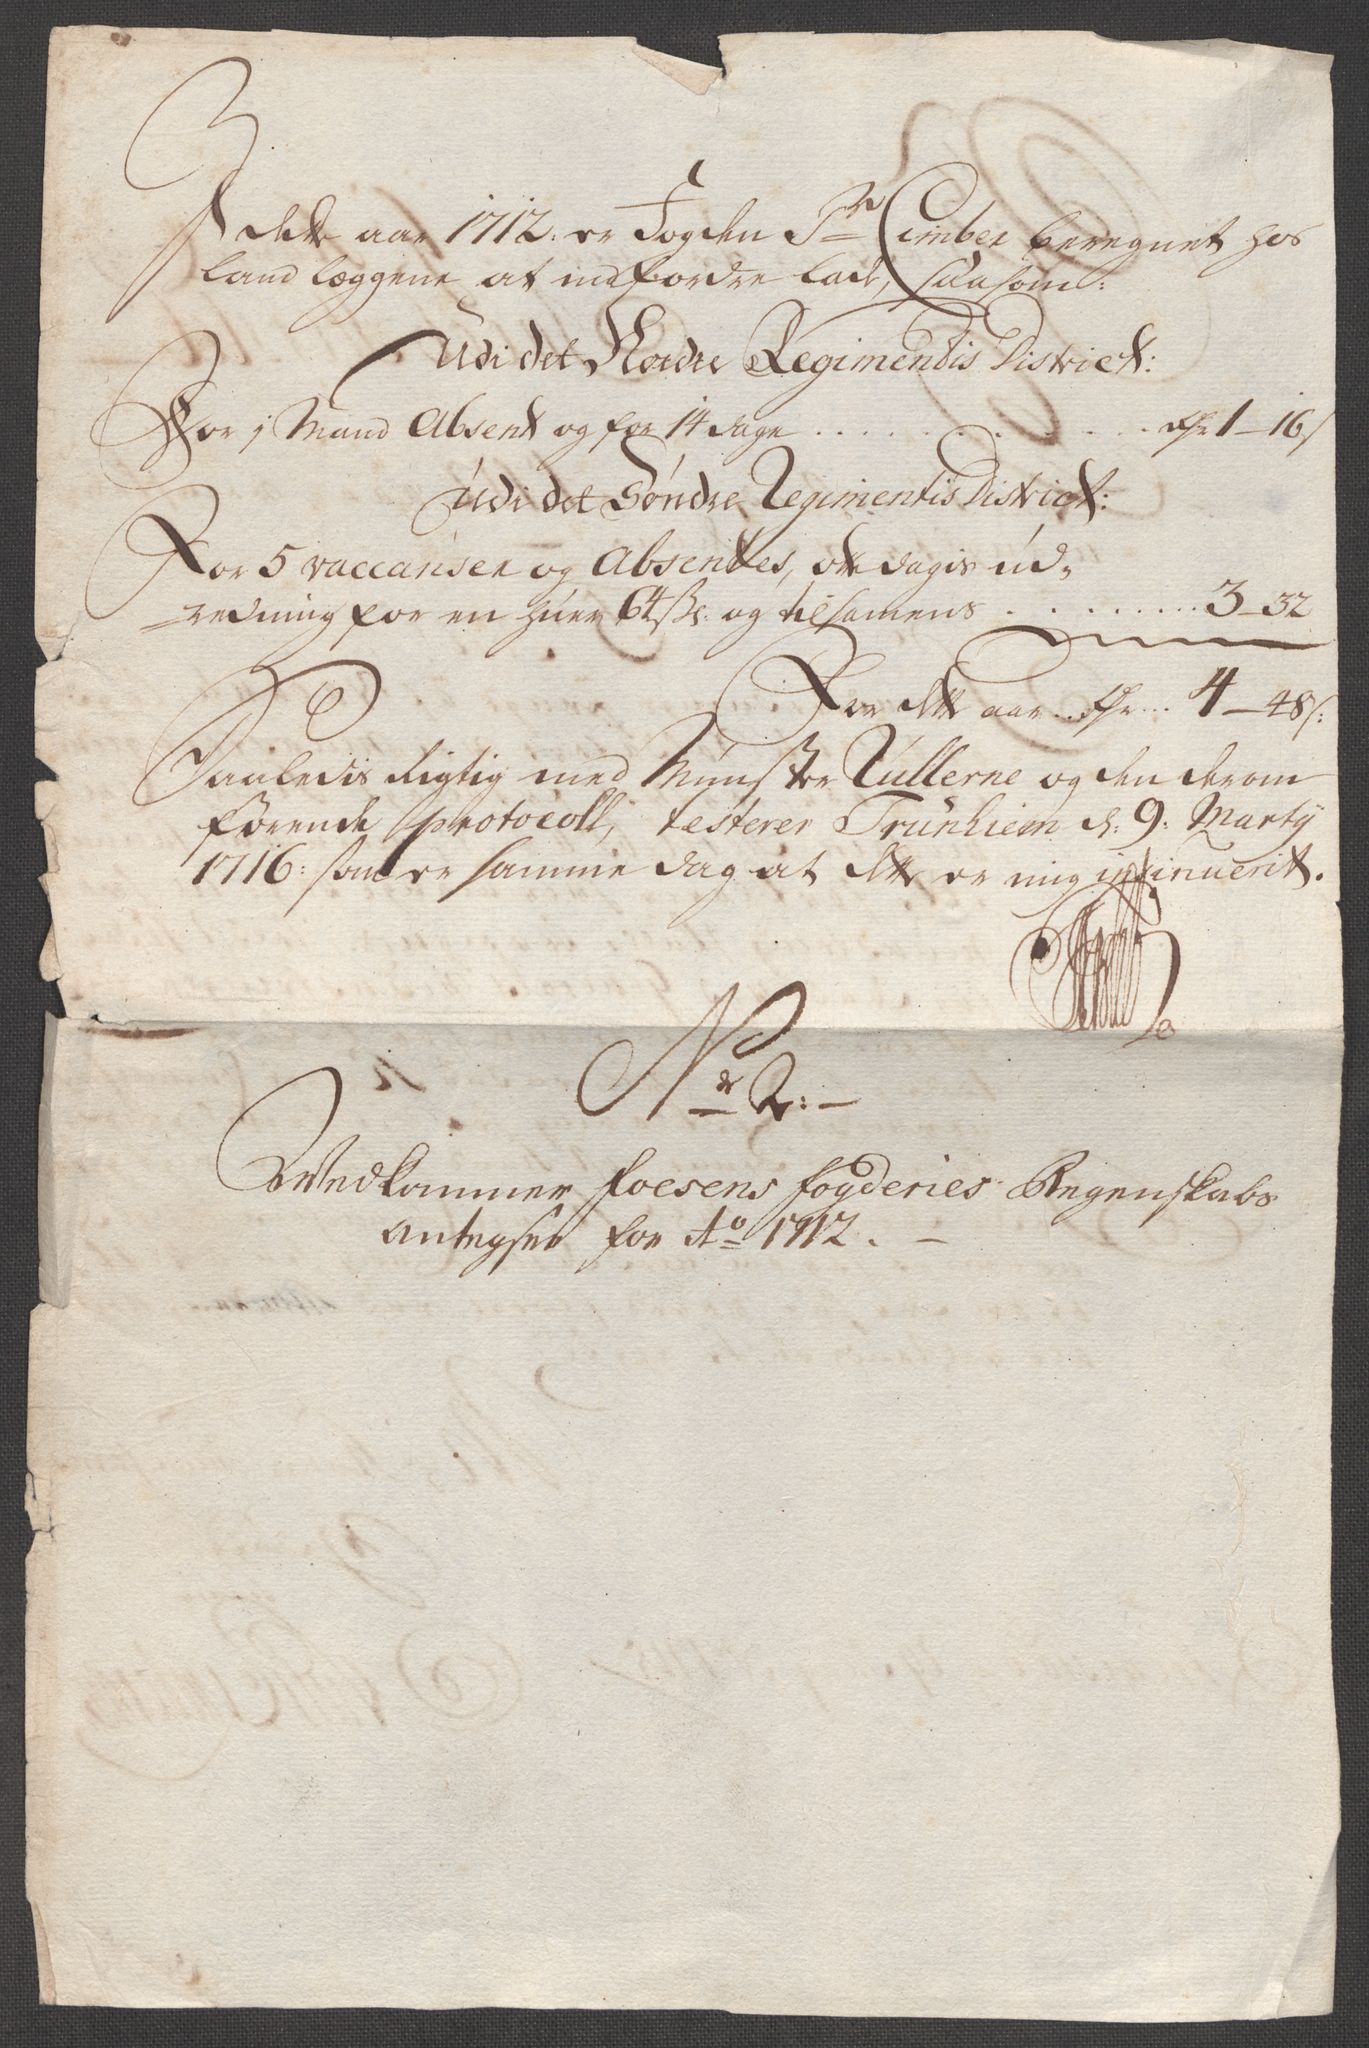 I dette aar 1712: er Fogden Sr Cimber beregnet hos
land læggene at indfordre lade, saasom:
Udi det Nordre Regimentis District:
For 1 Mand Absent og for 14 dage . . . . . . . . . . Rdr 1 – 16 s
Udi det Søndre Regimentis District:
For 5 vaccanser og Absentes, otte dagis ud,,
redning for en huer 64 sk: og tilsamens . . . . . . . . . 3 – 32
For dette aar . . Rdr . . . 4 – 48 s:
Saaledis Rigtig med Mynster Rullerne og den derom
førende protocoll, testerer Trunhiem d: 9: Marty
1716: som er samme dag at dette er mig insinuerit.
No 2: –
Vedkommer Foesens fogderies Regenskabs
Antegser for Ao 1712. –